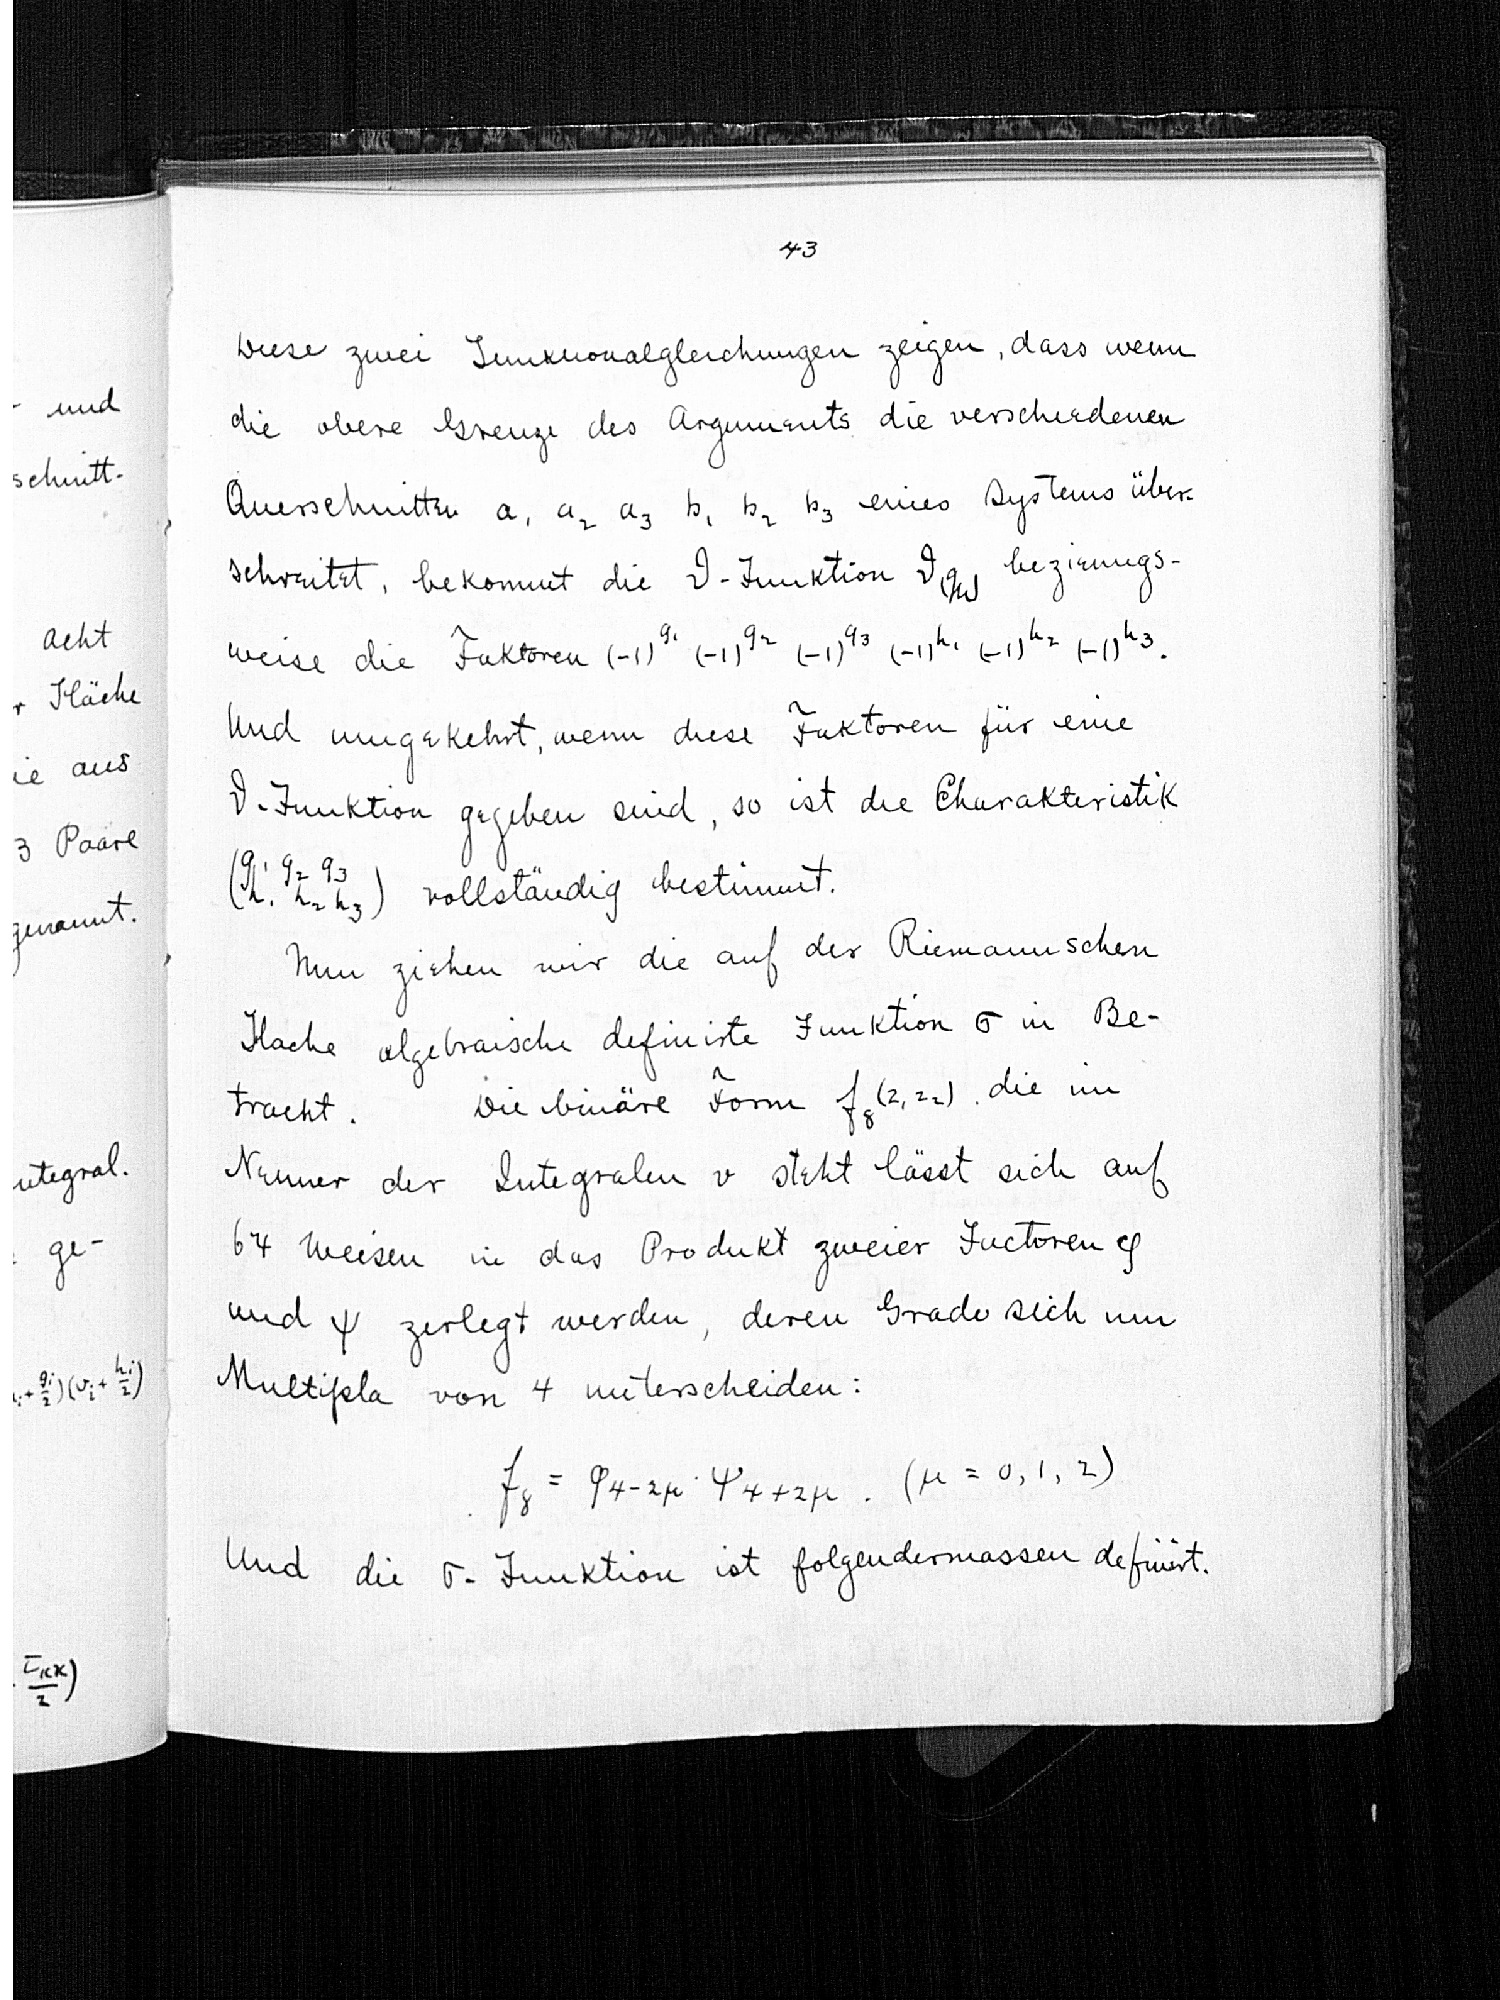 43
Diese zwei Funktionalgleichungen zeigen, dass wenn
die obere Grenze des Arguments die verschiedenen
Querschnitten a₁ a₂ a₃ b₁ b₂ b₃ eines Systems über-
schreitet, bekommt die ϑ-Funktion ϑ(g/h) beziehungs-
weise die Faktoren (-1)^g₁ (-1)^g₂ (-1)^g₃ (-1)^h₁ (-1)^h₂ (-1)^h₃.
Und umgekehrt, wenn diese Faktoren für eine
ϑ-Funktion gegeben sind, so ist die Charakteristik
(g₁ g₂ g₃ / h₁ h₂ h₃) vollständig bestimmt.
Nun ziehen wir die auf der Riemannschen
Fläche algebraische definirte Funktion σ in Be-
tracht. Die binäre Form f₈(z₁z₂), die im
Nenner der Integralen v steht lässt sich auf
64 Weisen in das Produkt zweier Factoren φ
und ψ zerlegt werden, deren Grade sich um
Multipla von 4 unterscheiden:
f₈ = φ₄₋₂μ · ψ₄₊₂μ. (μ = 0, 1, 2)
Und die σ-Funktion ist folgendermassen definirt.
und
schnitt-
acht
r Fläche
ie aus
3 Paare
genannt.
ntegral.
ge-
+ gᵢ/2)(vᵢ + hᵢ/2)
τκκ/2)